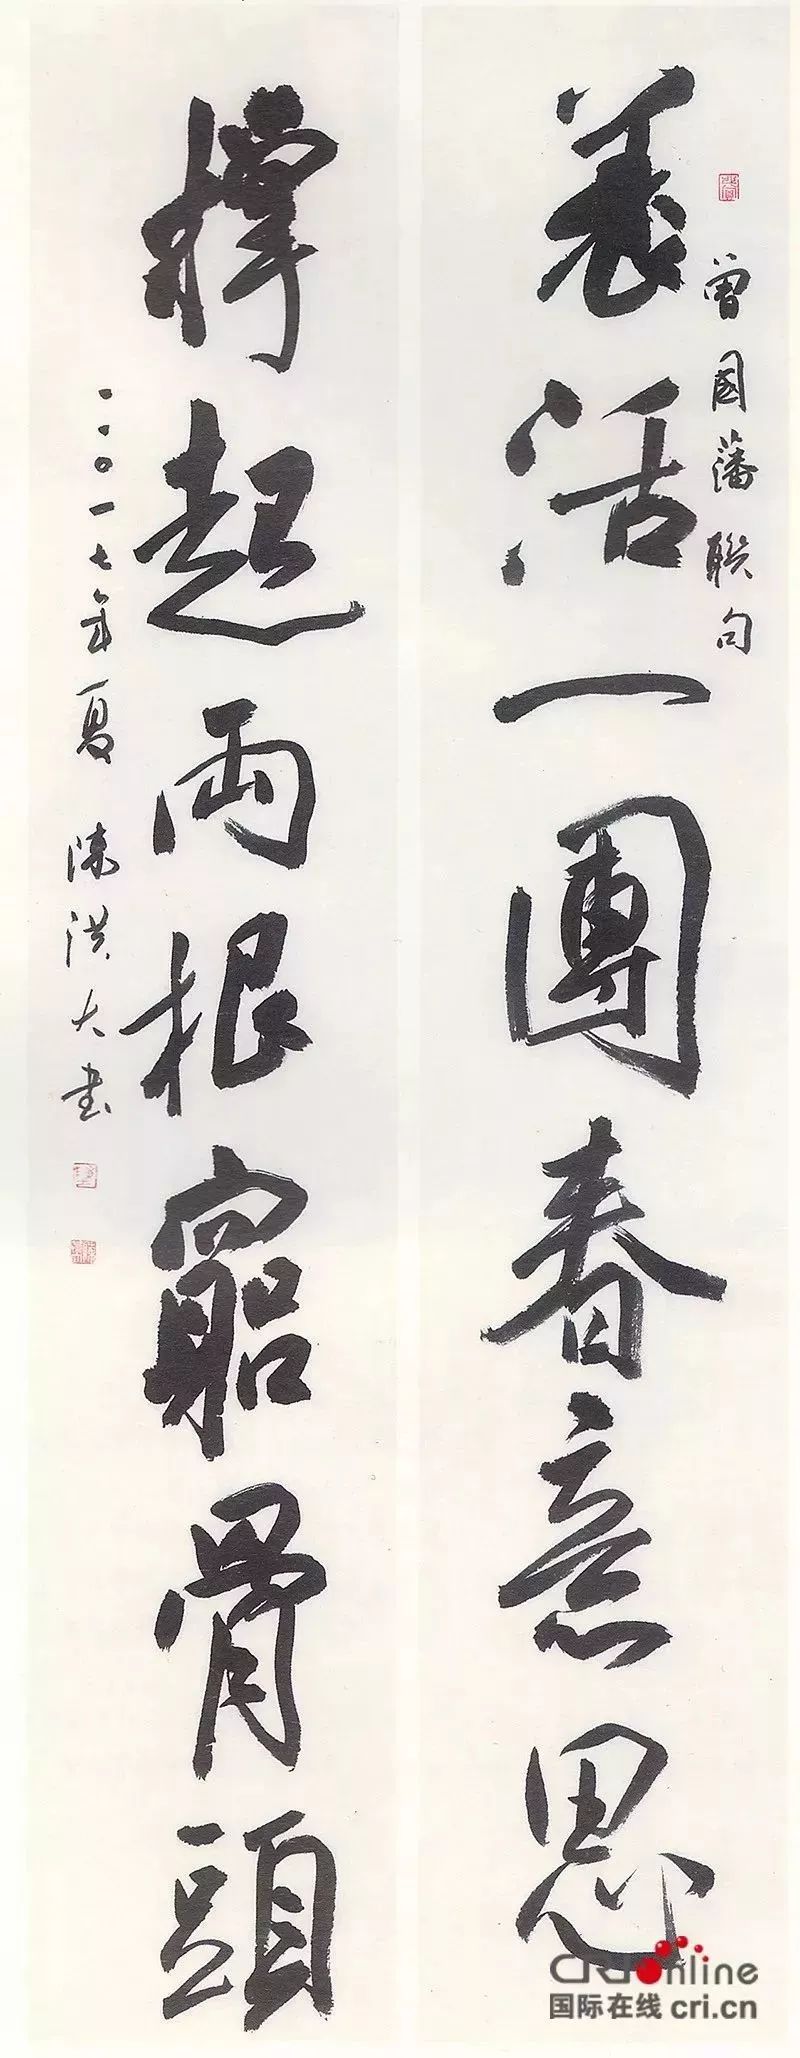 曾國藩聯句
養活一團春意思
撐起兩根窮骨頭
二〇一七年夏 陳洪大書
CRIonline
国际在线 cri.cn